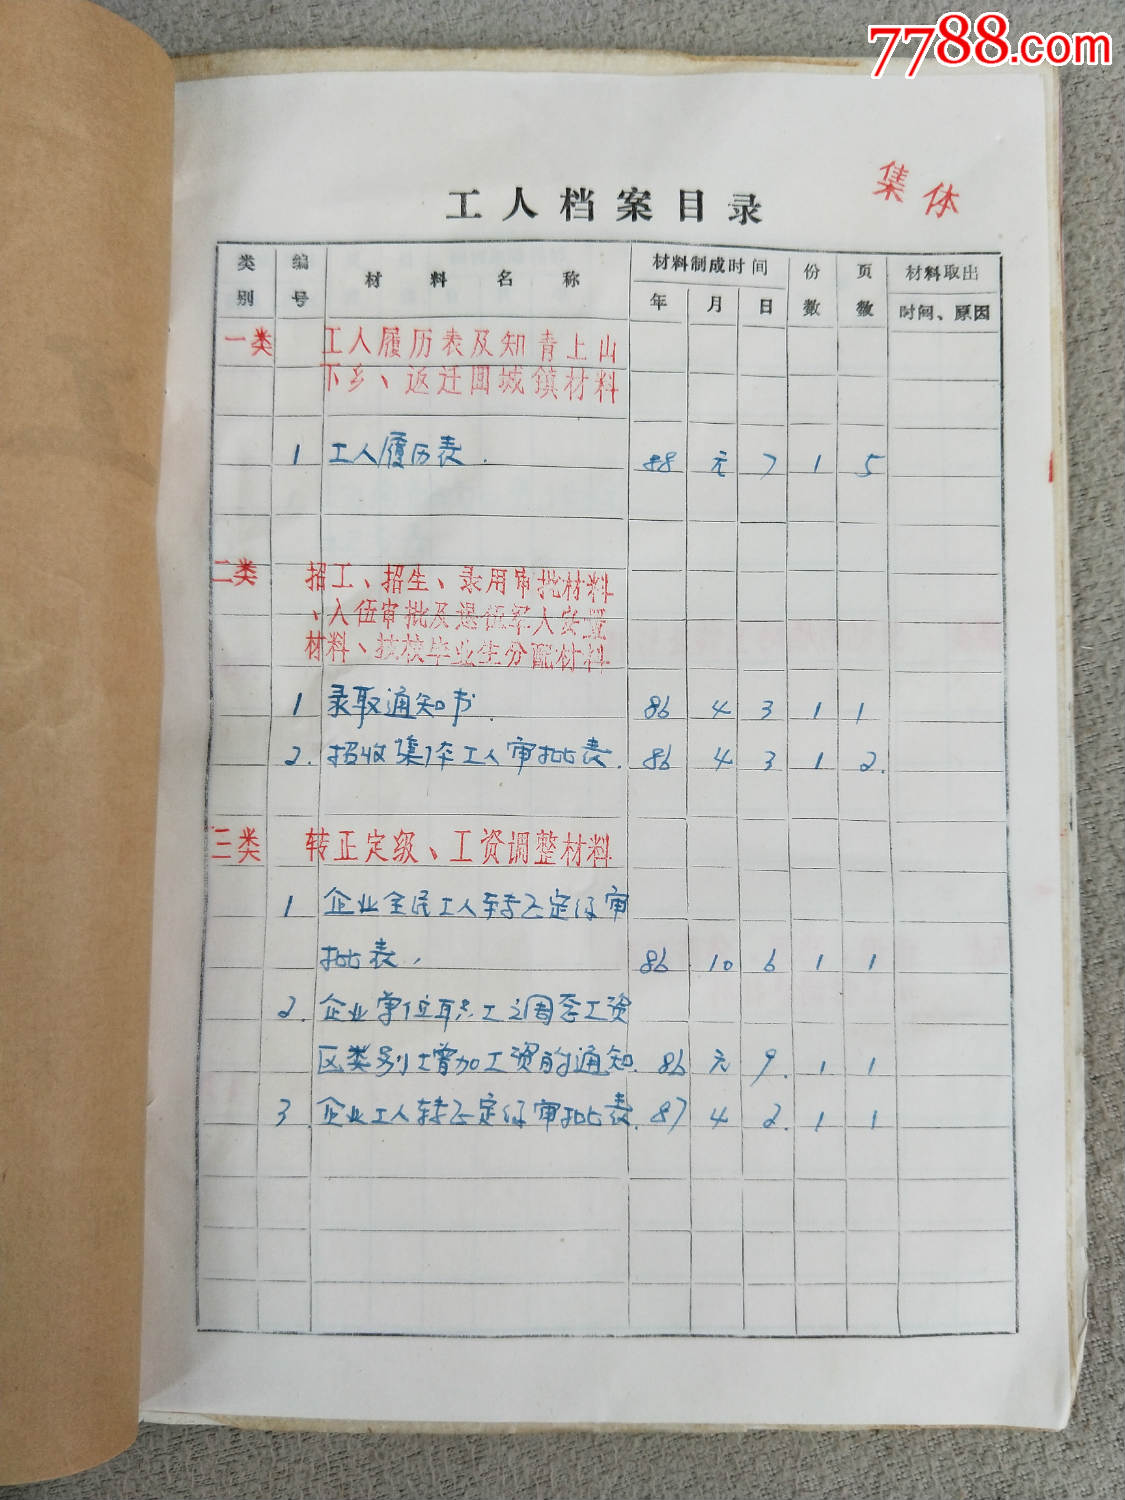 7788.com
集体
工人档案目录
类别 编号 材料名称 材料制成时间 份数 页数 材料取出
年 月 日 时间、原因
一类 工人履历表及知青上山
下乡、返迁回城镇材料
1 工人履历表. 88 元 7 1 5
二类 招工、招生、录用审批材料
、入伍审批及退伍军人安置
材料、技校毕业生分配材料
1 录取通知书. 86 4 3 1 1
2. 招收集体工人审批表. 86 4 3 1 2.
三类 转正定级、工资调整材料
1 企业全民工人转正定级审
批表, 86 10 6 1 1
2. 企业单位职工调整工资
区类别增加工资的通知. 86 元 9. 1 1
3 企业工人转正定级审批表. 87 4 2. 1 1